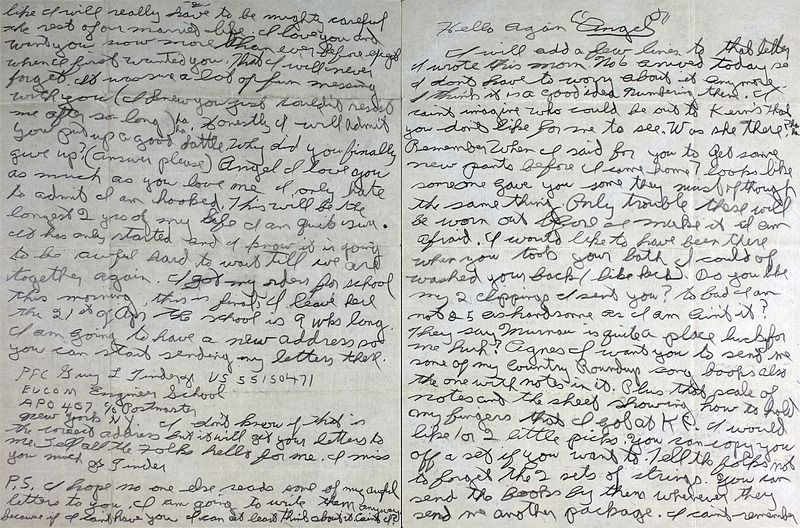 like I will really have to be mighty careful
the rest of our married life. I love you and
want you now more than ever before except
when I first wanted you. That I will never
forget. It was sure a lot of fun messing
with you (I knew you just couldn't resist
me after so long ha ha. Honestly I will admit
you put up a good battle. Why did you finally
give up? (answer please) Angel I love you
as much as you love me I only hate
to admit I am hooked. This will be the
longest 2 yrs of my life I am quite sure.
It has only started and I know it is going
to be awful hard to wait till we are
together again. I got my orders for school
this morning, this is final. I leave here
the 21st of Apr. The school is 9 wks long.
I am going to have a new address so
you can start sending my letters there.
PFC Guy F Tinder US 55150471
EUCOM Engineer School
APO 407 % Postmaster
New York N.Y. I don't know if that is
the correct address but it will get your letters to
me. Tell all the folks hello for me. I miss
you much
Tinder
P.S. I hope no one else reads some of my awful
letters to you. I am going to write them anyway
because if I can't have you I can at least think about it can't I?
Hello Again "Angel"
I will add a few lines to that letter
I wrote this morn. No 6 arrived today so
I don't have to worry about it any more.
I think it is a good idea numbering them. I
can't imagine who could be out to Kern's that
you don't like for me to see. Was she there?
Remember when I said for you to get some
new pants before I come home? Looks like
someone gave you some they must of thought
the same thing. Only trouble these will
be worn out before I make it I am
afraid. I would like to have been there
when you took your bath I could of
washed your back (like heck. Do you like
my 2 clippings I sent you? To bad I am
not as handsome as I am ain't it?
They say Murnau is quite a place luck for
me huh? Agnes I want you to send me
some of my Country Roundup song books also
the one with notes in it. Plus that scale of
notes and the sheet showing how to hold
my fingers that I got at KC. I would
like 1 or 2 little picks. You can copy you
off a set if you want to. Tell the folks not
to forget the 2 sets of strings. You can
send the books by them whenever they
send me another package. I can't remember